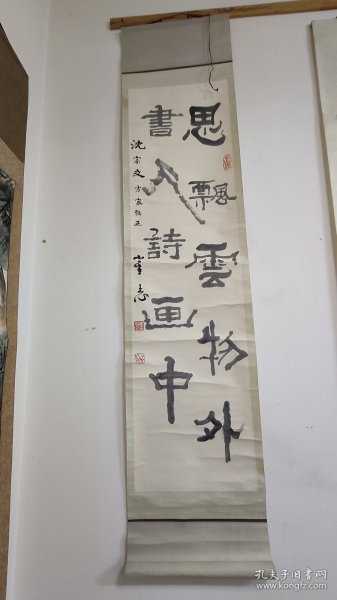 思飄雲物外
書入詩画中
沈宗方家雅正
志
孔夫子旧书网
www.kongfz.com